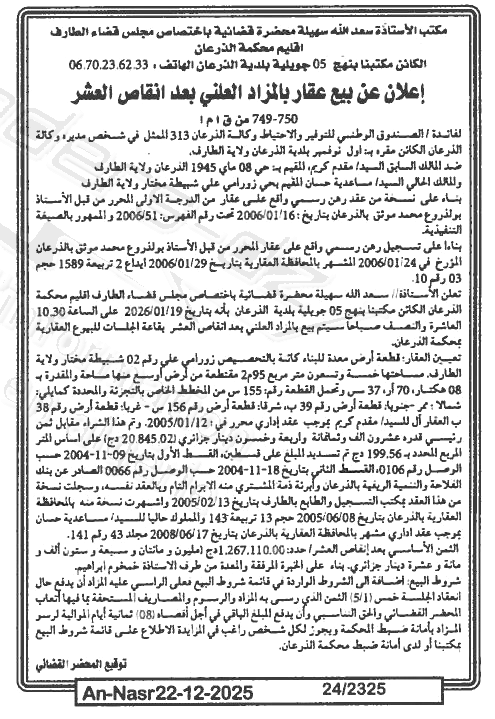 مكتب الأستاذة سعد الله سهيلة محضرة قضائية باختصاص مجلس قضاء الطارف
اقليم محكمة الذرعان
الكائن مكتبنا بنهج 05 جويلية بلدية الذرعان الهاتف : 06.70.23.62.33
إعلان عن بيع عقار بالمزاد العلني بعد انقاص العشر
749-750 من ق إ م إ
لفائدة / الصندوق الوطني للتوفير والاحتياط وكالة الذرعان 313 الممثل في شخص مديره وكالة
الذرعان الكائن مقره بـ: اول نوفمبر بلدية الذرعان ولاية الطارف.
ضد المالك السابق السيد/ مقدم كريم، المقيم بـ: حي 08 ماي 1945 الذرعان ولاية الطارف
والمالك الحالي السيد/ مساعدية حسان المقيم بحي زورامي علي شبيطة مختار ولاية الطارف
بناء على نسخة من عقد رهن رسمي واقع على عقار من الدرجة الاولى المحرر من قبل الأستاذ
بولذروع محمد موثق بالذرعان بتاريخ : 2006/01/16 تحت رقم الفهرس: 2006/51 والممهور بالصيغة
التنفيذية.
بناءا على تسجيل رهن رسمي واقع على عقار المحرر من قبل الأستاذ بولذروع محمد موثق بالذرعان
المؤرخ في 2006/01/24 المشهر بالمحافظة العقارية بتاريخ 2006/01/29 ايداع 2 تربيعة 1589 حجم
03 رقم 10.
تعلن الأستاذة// سعد الله سهيلة محضرة قضائية باختصاص مجلس قضاء الطارف اقليم محكمة
الذرعان الكائن مكتبنا بنهج 05 جويلية بلدية الذرعان بأنه بتاريخ 2026/01/19 على الساعة 10.30
العاشرة والنصف صباحا سيتم بيع بالمزاد العلني بعد انقاص العشر بقاعة الجلسات للبيوع العقارية
بمحكمة الذرعان.
تعيين العقار: قطعة أرض معدة للبناء كائنة بالتحصيص زورامي علي رقم 02 شبيطة مختار ولاية
الطارف. مساحتها خمسة وتسعون متر مربع 95م2 مقتطعة من أرض أوسع منها مساحة والمقدرة بـ
08 هكتار، 70 آر، 37 س وتحمل القطعة رقم: 155 س من المخطط الخاص بالتجزئة والمحددة كمايلي:
شمالا : ممر - جنوبا: قطعة أرض رقم 39 ب، شرقا: قطعة أرض رقم 156 س - غربا: قطعة أرض رقم 38
ب العقار آل للسيد/ مقدم كريم بموجب عقد إداري محرر في : 2005/01/12. وتم هذا الشراء مقابل ثمن
رئيسي قدره عشرون الف وثمانمائة واربعة وخمسون دينار جزائري (20.845.02 دج) على اساس المتر
المربع المحدد بـ 199.56 دج تم تسديد المبلغ على قسطين، القسط الأول بتاريخ 09-11-2004 حسب
الوصل رقم 0106، القسط الثاني بتاريخ 18-11-2004 حسب الوصل رقم 0066 الصادر عن بنك
الفلاحة والتنمية الريفية بالذرعان وأبرئة ذمة المشتري منه الابرام التام وبالعقد نفسه، وسجلت نسخة
من هذا العقد بمكتب التسجيل والطابع بالطارف بتاريخ 2005/02/13 واشهرت نسخة منه بالمحافظة
العقارية بالذرعان بتاريخ 2005/06/08 حجم 13 تربيعة 143 والمملوك حاليا للسيد/ مساعدية حسان
بموجب عقد اداري مشهر بالمحافظة العقارية بالذرعان بتاريخ 2008/06/17 مجلد 43 رقم 141.
الثمن الأساسي بعد إنقاص العشر/ حدد: 1.267.110.00دج (مليون و مائتان و سبعة و ستون ألف و
مائة و عشرة دينار جزائري. بناء على الخبرة المرفقة والمعدة من طرف الاستاذة خمخوم ابراهيم.
شروط البيع: اضافة الى الشروط الواردة في قائمة شروط البيع فعلى الراسي عليه المزاد أن يدفع حال
انعقاد الجلسة خمس (5/1) الثمن الذي رسى به المزاد والرسوم والمصاريف المستحقة بما فيها أتعاب
المحضر القضائي والحق التناسبي وأن يدفع المبلغ الباقي في أجل أقصاه (08) ثمانية أيام الموالية لرسو
المزاد بأمانة ضبط المحكمة ويجوز لكل شخص راغب في المزايدة الاطلاع على قائمة شروط البيع
بمكتبنا أو لدى أمانة ضبط محكمة الذرعان.
توقيع المحضر القضائي
An-Nasr22-12-2025
24/2325